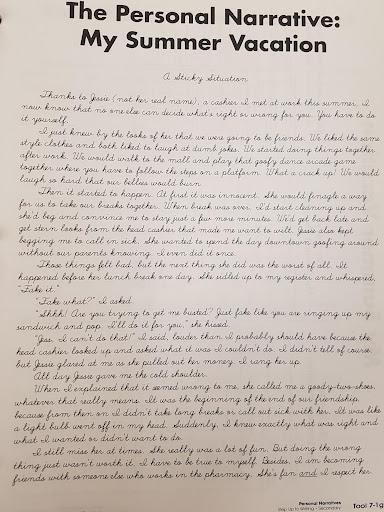 The Personal Narrative:
My Summer Vacation
A Sticky Situation
Thanks to Jessie (not her real name), a cashier I met at work this summer, I
now know that no one else can decide what's right or wrong for you. You have to do
it yourself.
I just knew by the looks of her that we were going to be friends. We liked the same
style clothes and both liked to laugh at dumb jokes. We started doing things together
after work. We would walk to the mall and play that goofy dance arcade game
together where you have to follow the steps on a platform. What a crack up! We would
laugh so hard that our bellies would burn.
Then it started to happen. At first it was innocent. She would finagle a way
for us to take our breaks together. When break was over, I'd start cleaning up and
she'd beg and convince me to stay just a few more minutes. We'd get back late and
get stern looks from the head cashier that made me want to wilt. Jessie also kept
begging me to call in sick. She wanted to spend the day downtown goofing around
without our parents knowing. I even did it once.
Those things felt bad, but the next thing she did was the worst of all. It
happened before her lunch break one day. She sidled up to my register and whispered,
"Fake it."
"Fake what?" I asked.
"Shhh! Are you trying to get me busted? Just fake like you are ringing up my
sandwich and pop. I'll do it for you," she hissed.
"Jess, I can't do that!" I said, louder than I probably should have because the
head cashier looked up and asked what it was I couldn't do. I didn't tell of course,
but Jessie glared at me as she pulled out her money. I rang her up.
All day Jessie gave me the cold shoulder.
When I explained that it seemed wrong to me, she called me a goody-two-shoes,
whatever that really means. It was the beginning of the end of our friendship,
because from then on I didn't take long breaks or call out sick with her. It was like
a light bulb went off in my head. Suddenly, I knew exactly what was right and
what I wanted or didn't want to do.
I still miss her at times. She really was a lot of fun. But doing the wrong
thing just wasn't worth it. I have to be true to myself. Besides, I am becoming
friends with someone else who works in the pharmacy. She's fun and I respect her.
Personal Narratives
Step Up to Writing • Secondary
Tool 7-1g